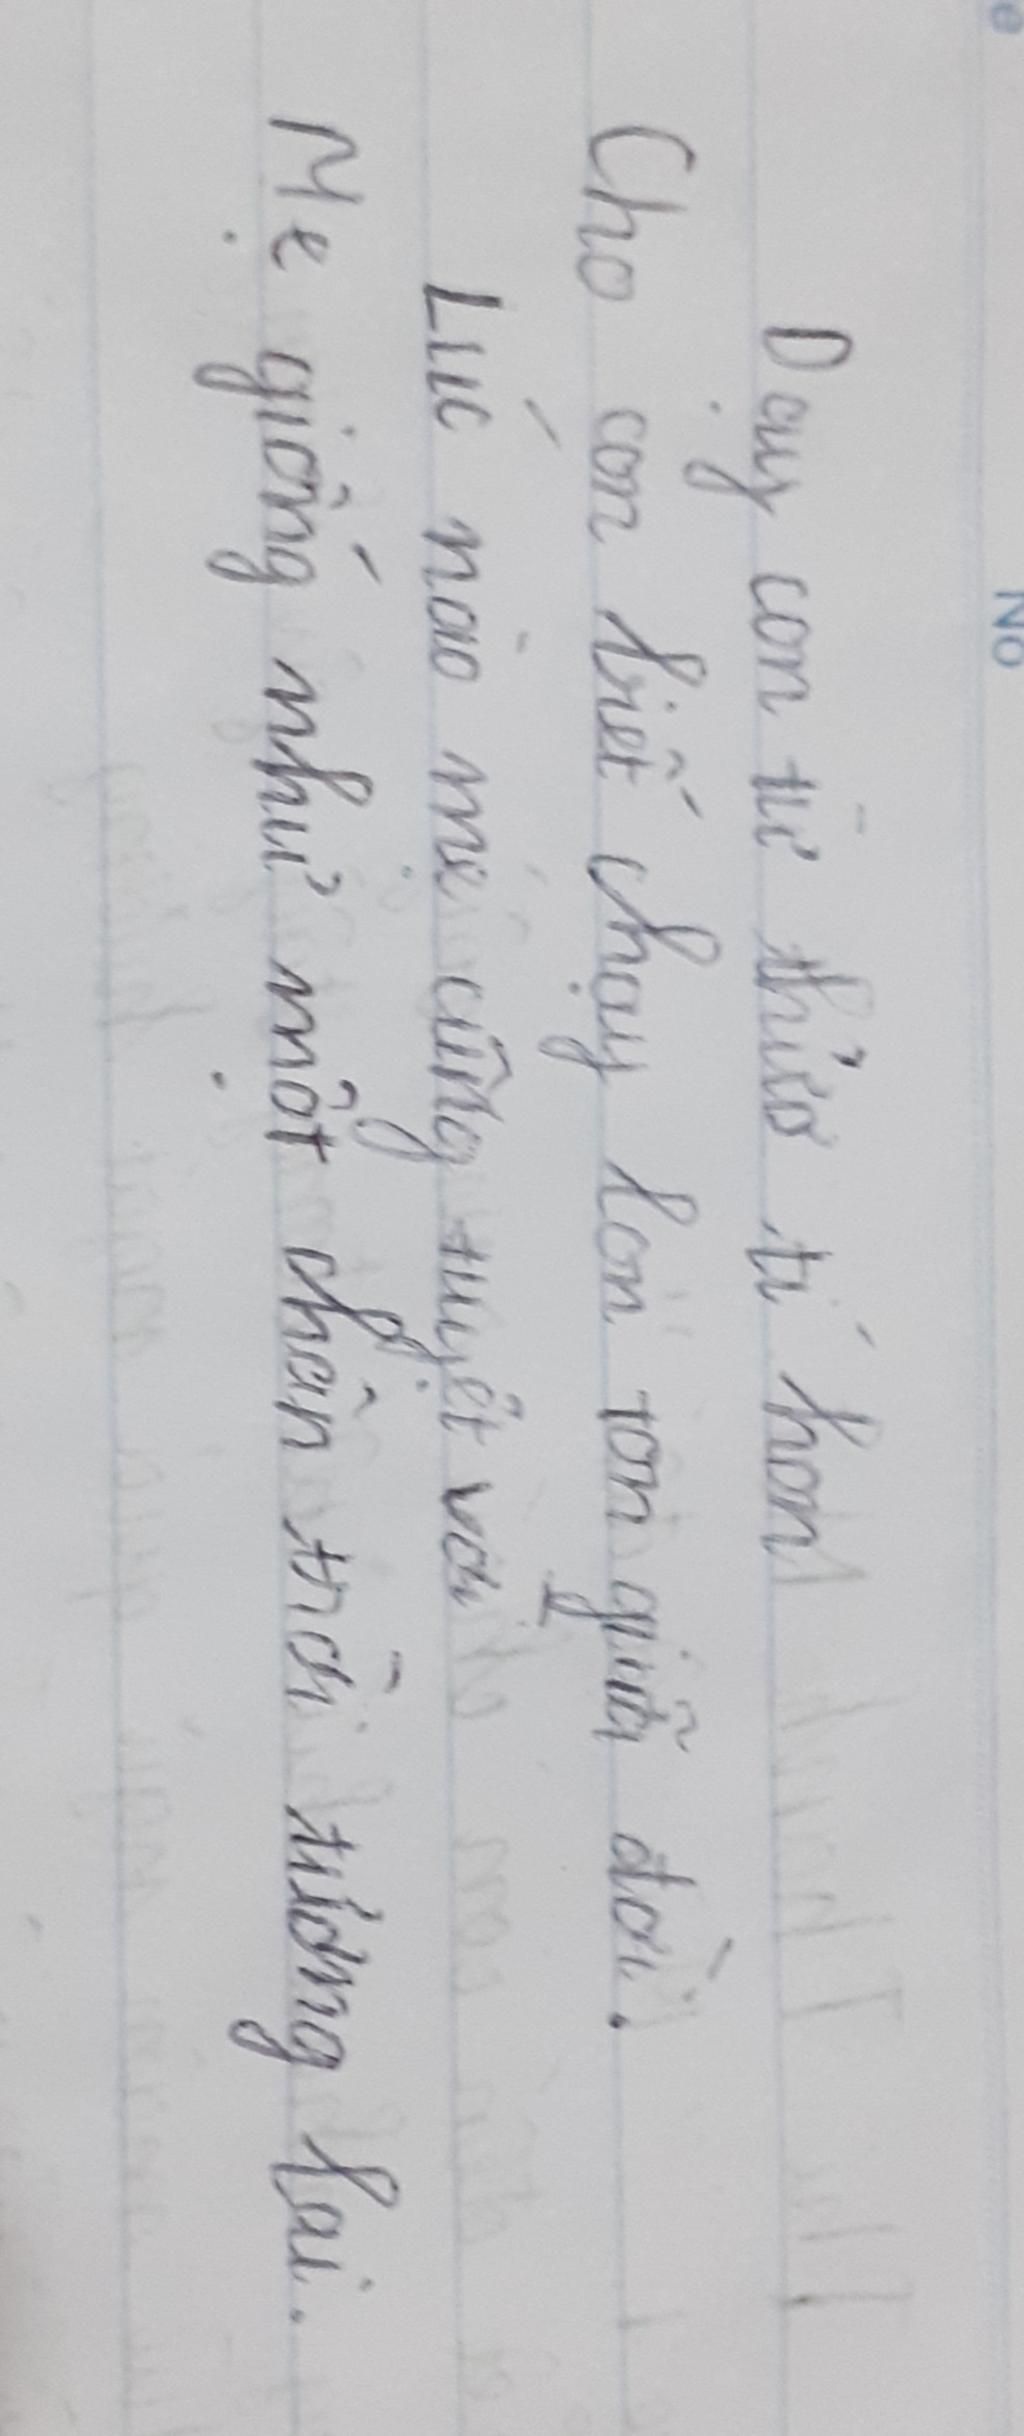 No
Dạy con từ thủa tí hon
Cho con biết chạy lon ton giữa đời.
Lúc nào mẹ cũng tuyệt vời
Mẹ giống như một chân trời tương lai.